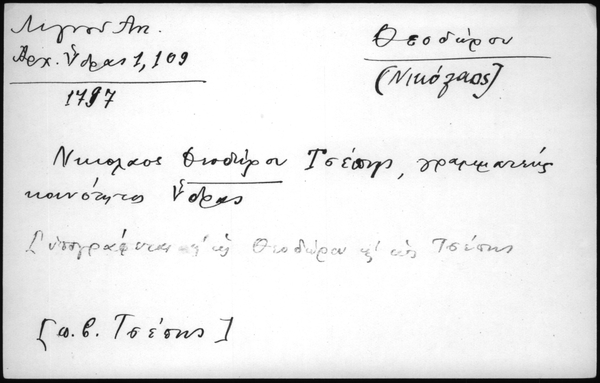 Λιγνού Αν.
Αρχ. Ύδρας 1, 109
1797
Θεοδώρου
[Νικόλαος]
Νικόλαος Θεοδώρου Τσέπης, γραμματεύς
κοινότητος Ύδρας
[Υπογράφεται κ' ως Θεοδώρου κ' ως Τσέπης
[π.β. Τσέπης]